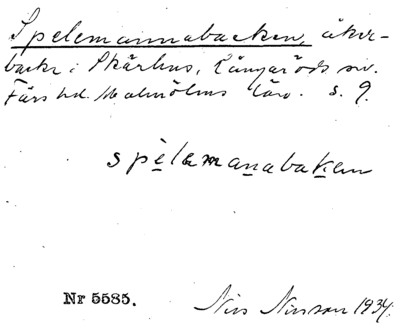 Spelemannabacken, åker-
backe i Skårhus, Långaröds sn.
Färs hd. Malmöhus län. s. 9.
spelamanabakan
Nr 5585. Nils Nilsson 1934.